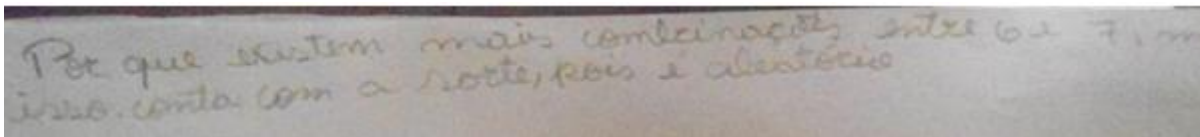 Por que existem mais combinações entre 6 e 7, m
isso. conta com a sorte, pois e aleatório